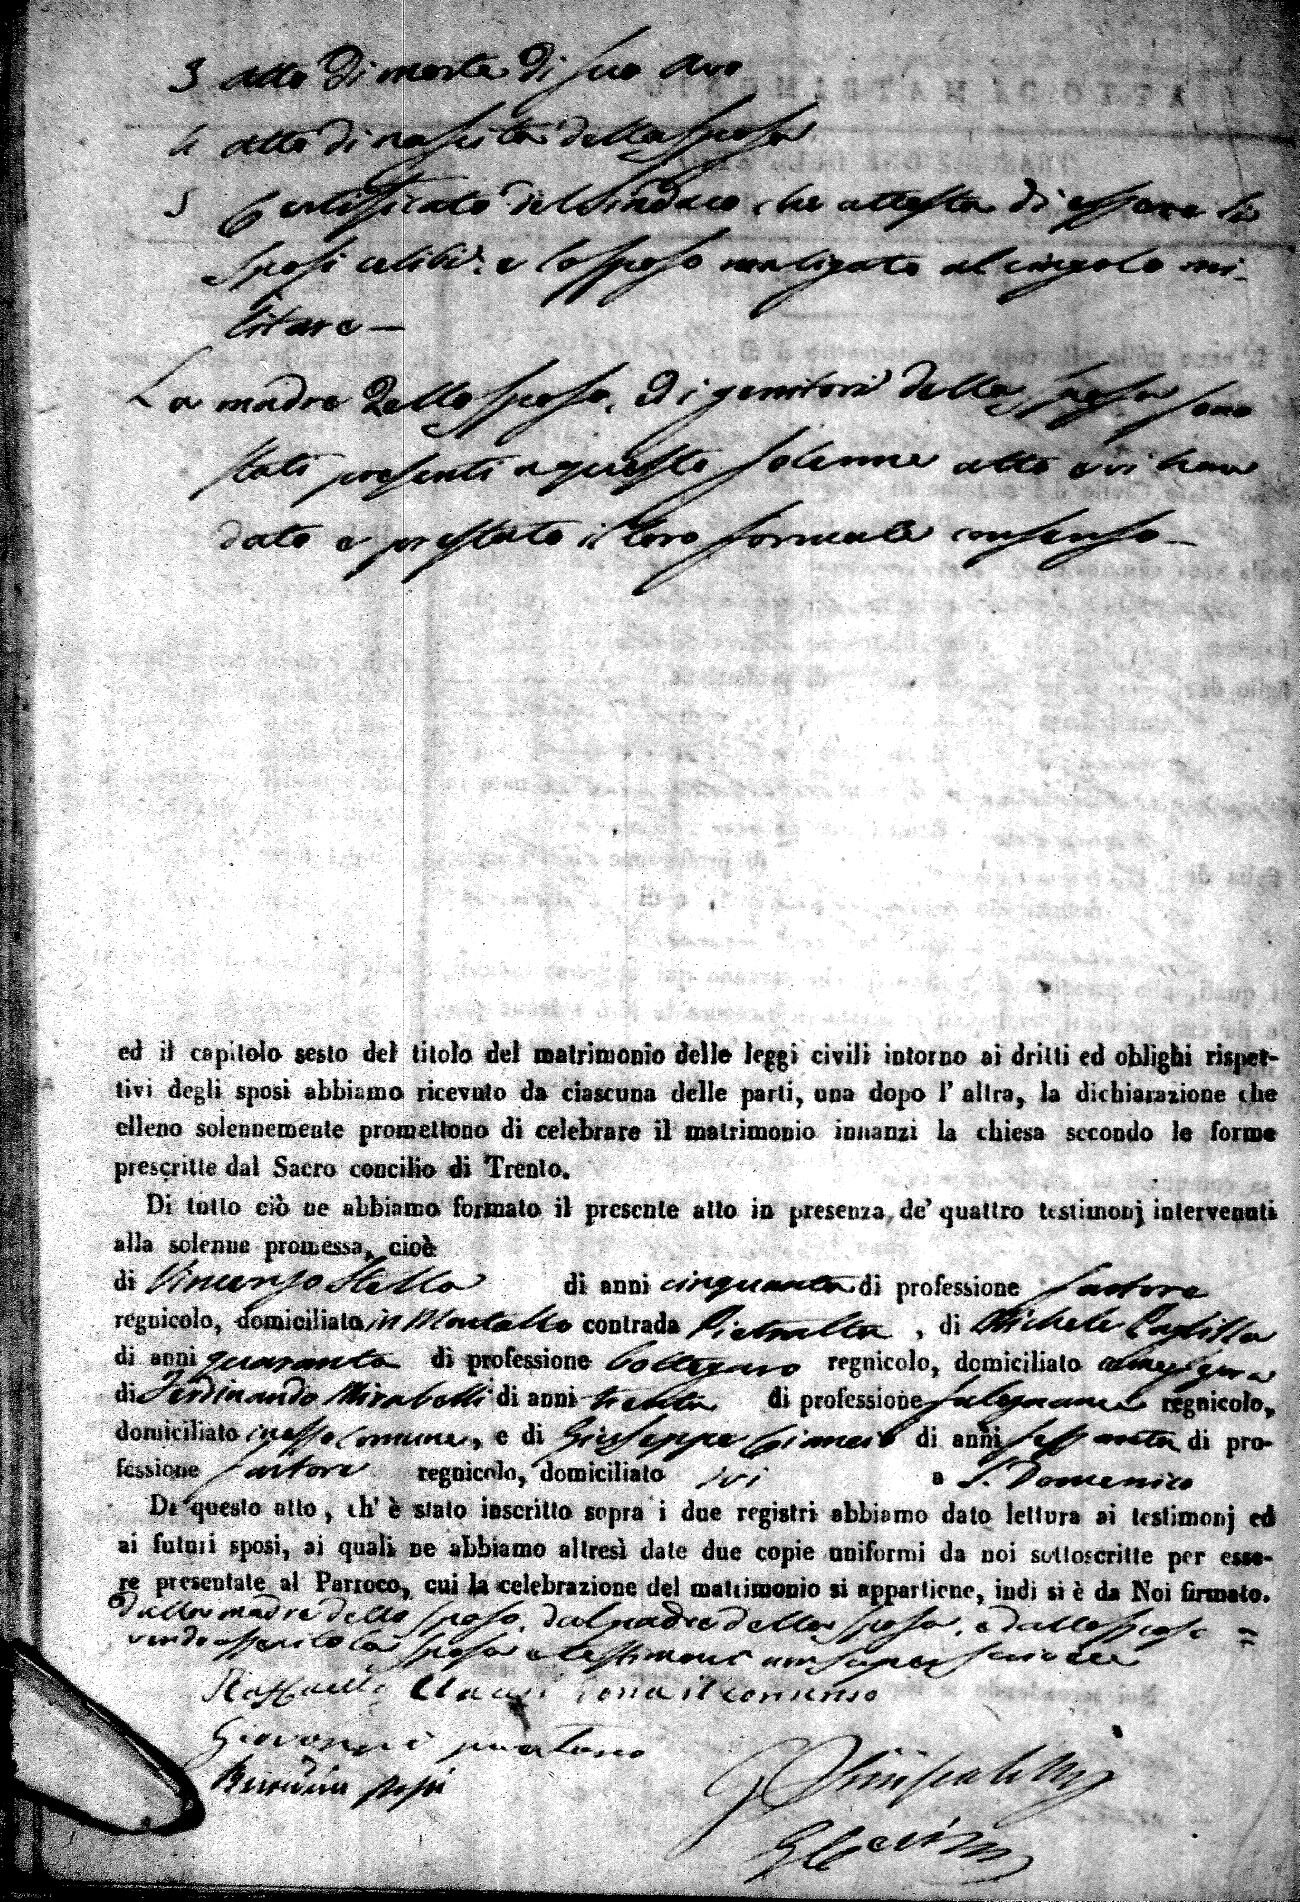 3 atto di morte di suo avo
4 atto di nascita della sposa
5 Certificato del Sindaco che attesta di essere li
sposi celibi. e lo sposo non ligato al cingolo mi-
litare —
La madre dello sposo, e di genitori della sposa sono
stati presenti a questo solenne atto e vi han
dato e prestato il loro formale consenso —
ed il capitolo sesto del titolo del matrimonio delle leggi civili intorno ai dritti ed oblighi rispet-
tivi degli sposi abbiamo ricevuto da ciascuna delle parti, una dopo l' altra, la dichiarazione che
elleno solennemente promettono di celebrare il matrimonio innanzi la chiesa secondo le forme
prescritte dal Sacro concilio di Trento.
Di tutto ciò ne abbiamo formato il presente atto in presenza de' quattro testimonj intervenuti
alla solenne promessa, cioè
di Vincenzo Stella di anni cinquanta di professione sartore
regnicolo, domiciliato in Montalto contrada Pietralta , di Michele
di anni quaranta di professione Bottegaro regnicolo, domiciliato
di Ferdinando Mirabelli di anni trenta di professione falegname regnicolo,
domiciliato in esso Comune, e di Giuseppe di anni sessanta di pro-
fessione sartore regnicolo, domiciliato ivi a S. Domenico
Di questo atto, ch' è stato inscritto sopra i due registri abbiamo dato lettura ai testimonj ed
ai futuri sposi, ai quali ne abbiamo altresì date due copie uniformi da noi sottoscritte per esse-
re presentate al Parroco, cui la celebrazione del matrimonio si appartiene, indi si è da Noi firmato.
dalla madre dello sposo, dal padre della sposa, e dallo sposo =
avendo asserito la sposa e testimoni non saper scrivere
Raffaella dona il consenso
Giovanni